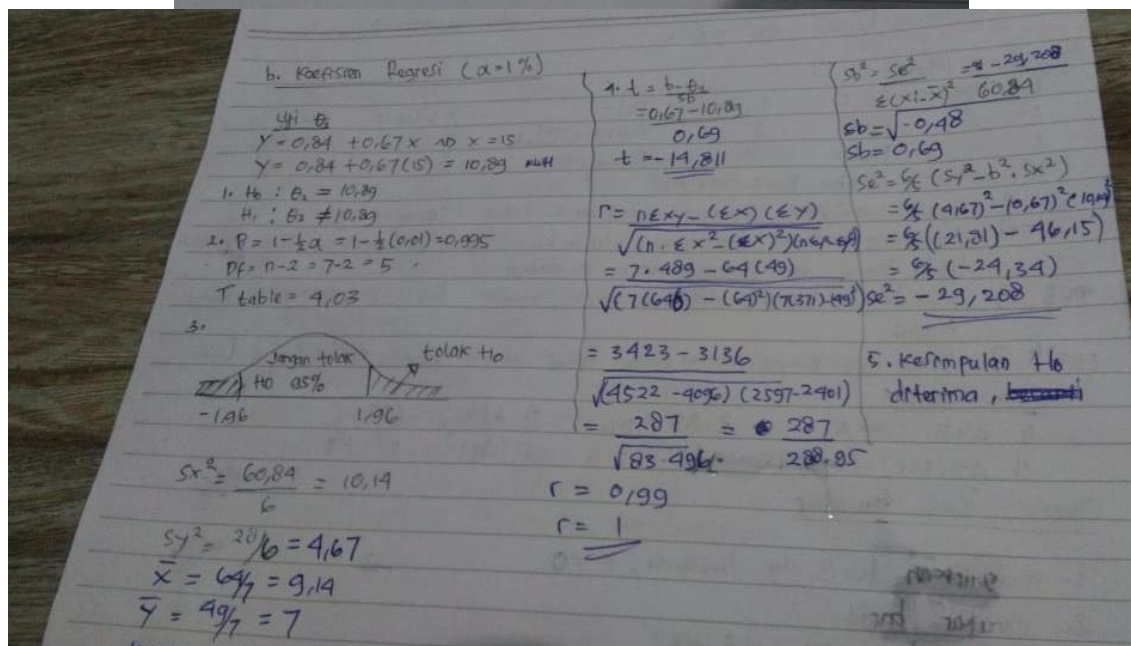 b. Koefisien Regresi (α=1%)
Uji θ₂
Y = 0,84 + 0,67x → x = 15
Y = 0,84 + 0,67(15) = 10,89
1. H₀ : θ₂ = 10,89
H₁ : θ₂ ≠ 10,89
2. P = 1-½α = 1-½(0,01) = 0,995
Df = n-2 = 7-2 = 5
T table = 4,03
3.
Jangan tolak
H₀ 95%
tolak H₀
-1,96
1,96
Sx² = 60,84/6 = 10,14
Sy² = 28/6 = 4,67
x̄ = 64/7 = 9,14
Ȳ = 49/7 = 7
4. t = b-θ₂/sb
= 0,67-10,89/0,69
t = -14,811
r = nΣxy - (Σx)(ΣY)
√(n.Σx²-(Σx)²)
= 7.489 - 64(49)
√(7(646) - (64)²)(7(371)-(49)²)
= 3423 - 3136
√(4522 - 4096)(2597-2401)
= 287/√83.496 = 287/288.95
r = 0,99
r = 1
sb² = se²/Σ(xi-x̄)² = -29,208/60,84
sb = √-0,48
sb = 0,69
Se² = 6/5 (Sy²-b².Sx²)
= 6/5 (4,67)²-(0,67)²(10,14)²
= 6/5 ((21,81) - 46,15)
= 6/5 (-24,34)
se² = -29,208
5. Kesimpulan H₀
diterima,